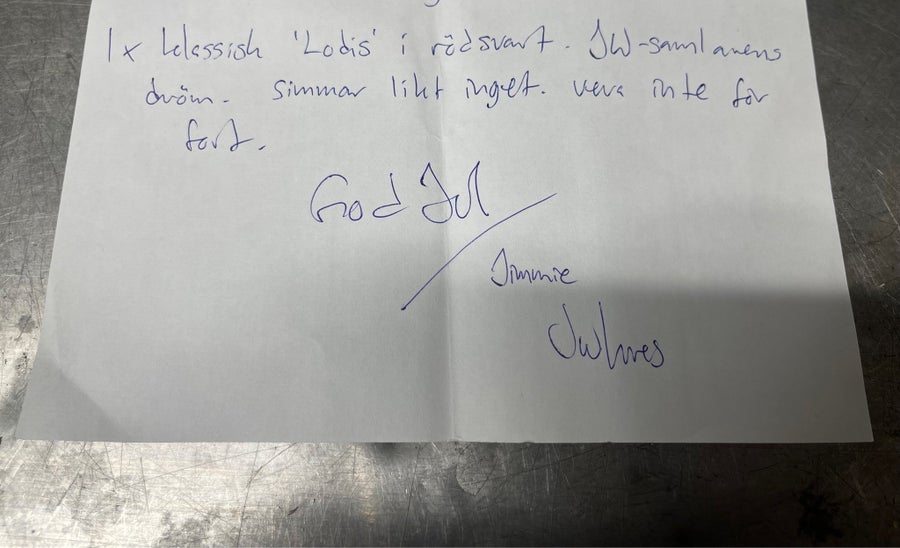 1x klassisk 'Lodis' i rödsvart. JW-samlarens
dröm. Simmar likt inget. veva inte för
fort.
God Jul
Jimmie
JWLures